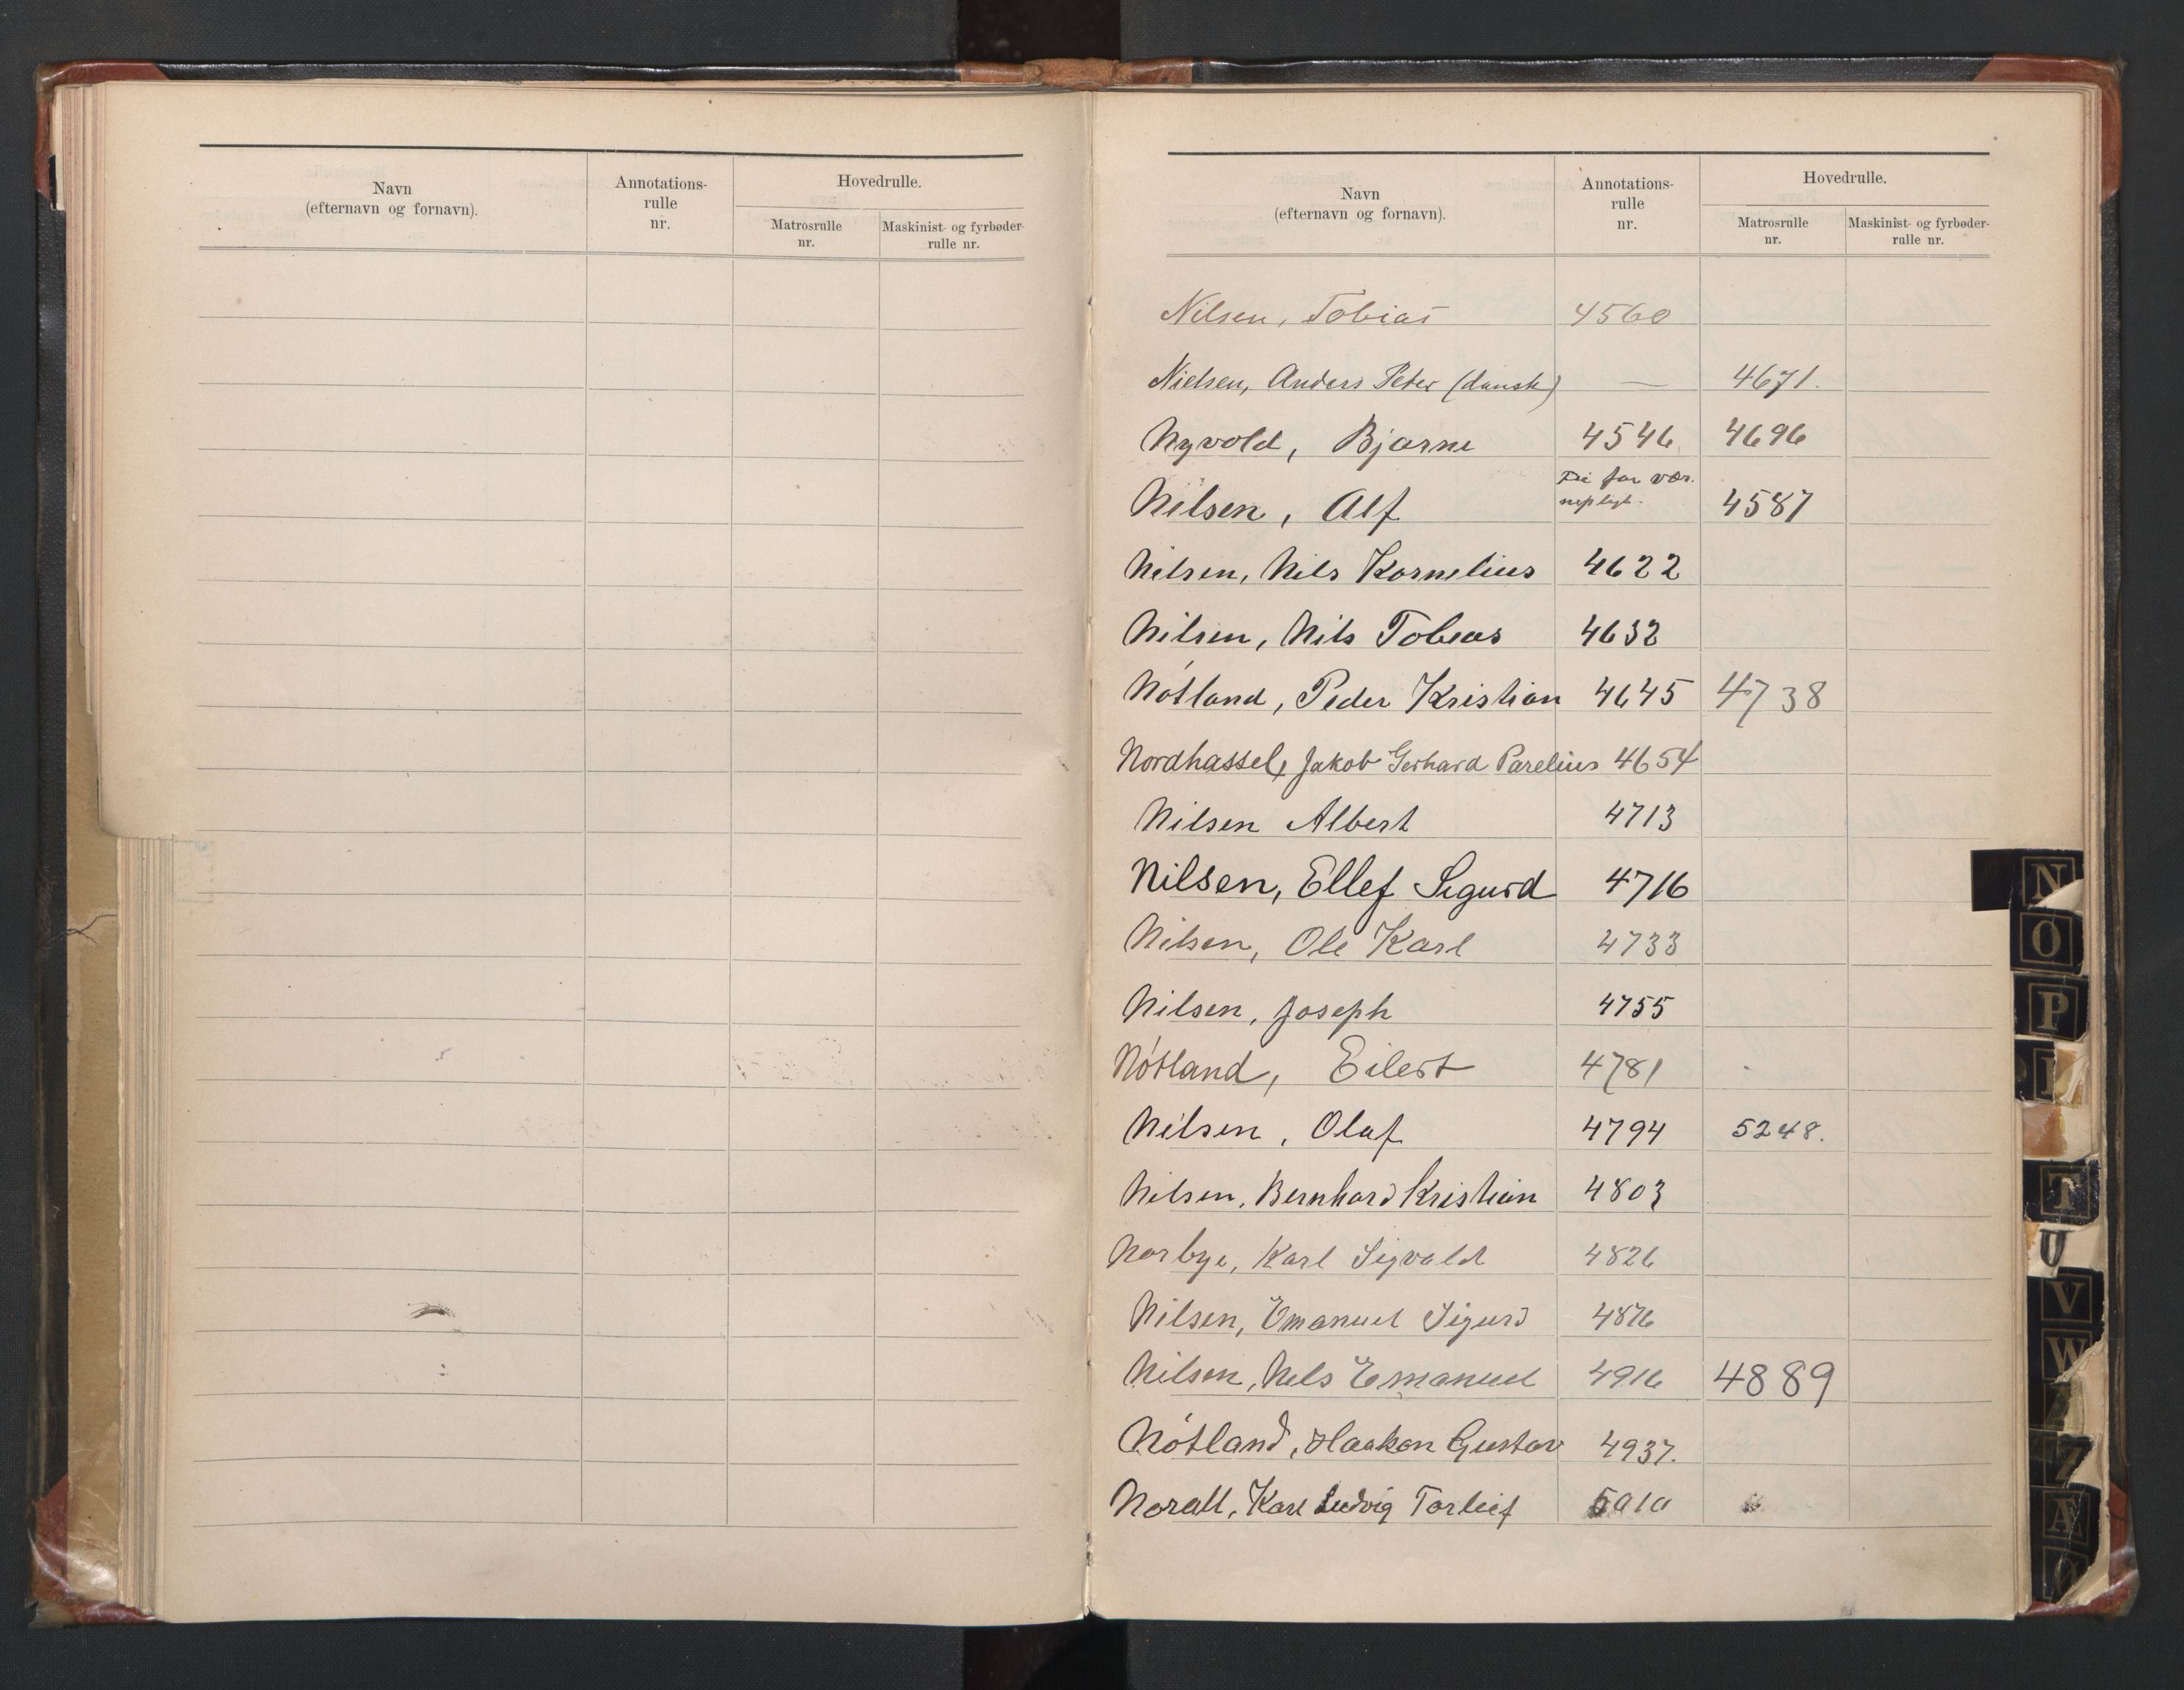 Navn
(efternavn og fornavn).
Annotations-
rulle
nr.
Hovedrulle.
Matrosrulle
nr.
Maskinist- og fyrbøder-
rulle nr.
Navn
(efternavn og fornavn).
Annotations-
rulle
nr.
Hovedrulle.
Matrosrulle
nr.
Maskinist- og fyrbøder-
rulle nr.
Nilsen, Tobias 4560
Nielsen, Anders Peter (dansk) — 4671.
Nyvold, Bjarne 4546 4696
Fri for vær.
nepligt.
Nilsen, Alf 4587
Nilsen, Nils Kornelius 4622
Nilsen, Nils Tobias 4632
Nótland, Peder Kristian 4645 4738
Nordhassel, Jakob Gerhard Parelius 4654
Nilsen Albert 4713
Nilsen, Ellef Sigurd 4716
Nilsen, Ole Karl 4733
Nilsen, Joseph 4755
Nótland, Eilert 4781
Nilsen, Olaf 4794 5248.
Nilsen, Bernhard Kristian 4803
Norbye, Karl Sigvald 4826
Nilsen, Emanuel Sigurd 4876
Nilsen, Nils Emanuel 4916 4889
Nótland, Haakon Gustav 4937.
Norall, Karl Ludvig Torleif 5010
N
O
P
T
U
V
W
Z
Æ